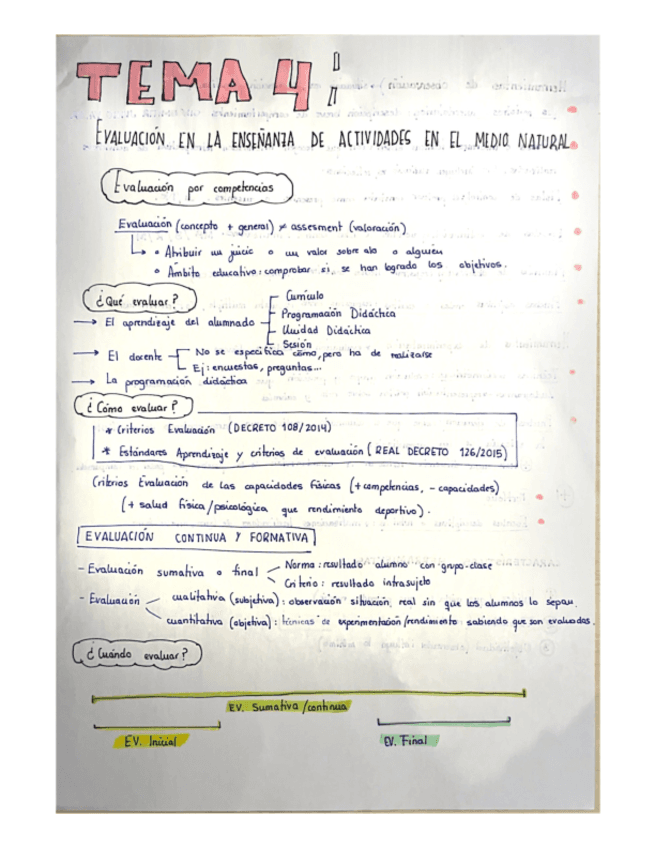 TEMA 4:
EVALUACIÓN EN LA ENSEÑANZA DE ACTIVIDADES EN EL MEDIO NATURAL.
Evaluación por competencias
Evaluación (concepto + general) ≠ assesment (valoración)
• Atribuir un juicio o un valor sobre alo o alguien
• Ámbito educativo: comprobar si se han logrado los objetivos.
¿Qué evaluar?
→ El aprendizaje del alumnado
Currículo
Programación Didáctica
Unidad Didáctica
Sesión
→ El docente
No se especifica cómo, pero ha de realizarse
Ej: encuestas, preguntas...
→ La programación didáctica
¿Cómo evaluar?
* Criterios Evaluación (DECRETO 108/2014)
* Estándares Aprendizaje y criterios de evaluación (REAL DECRETO 126/2015)
Criterios Evaluación de las capacidades físicas (+ competencias, - capacidades)
(+ salud física/psicológica que rendimiento deportivo).
EVALUACIÓN CONTINUA Y FORMATIVA
- Evaluación sumativa o final
Norma: resultado alumno con grupo-clase
Criterio: resultado intrasujeto
- Evaluación
cualitativa (subjetiva): observación situación real sin que los alumnos lo sepan.
cuantitativa (objetiva): técnicas de experimentación/rendimiento sabiendo que son evaluados.
¿Cuándo evaluar?
EV. Sumativa/continua
EV. Inicial
EV. Final